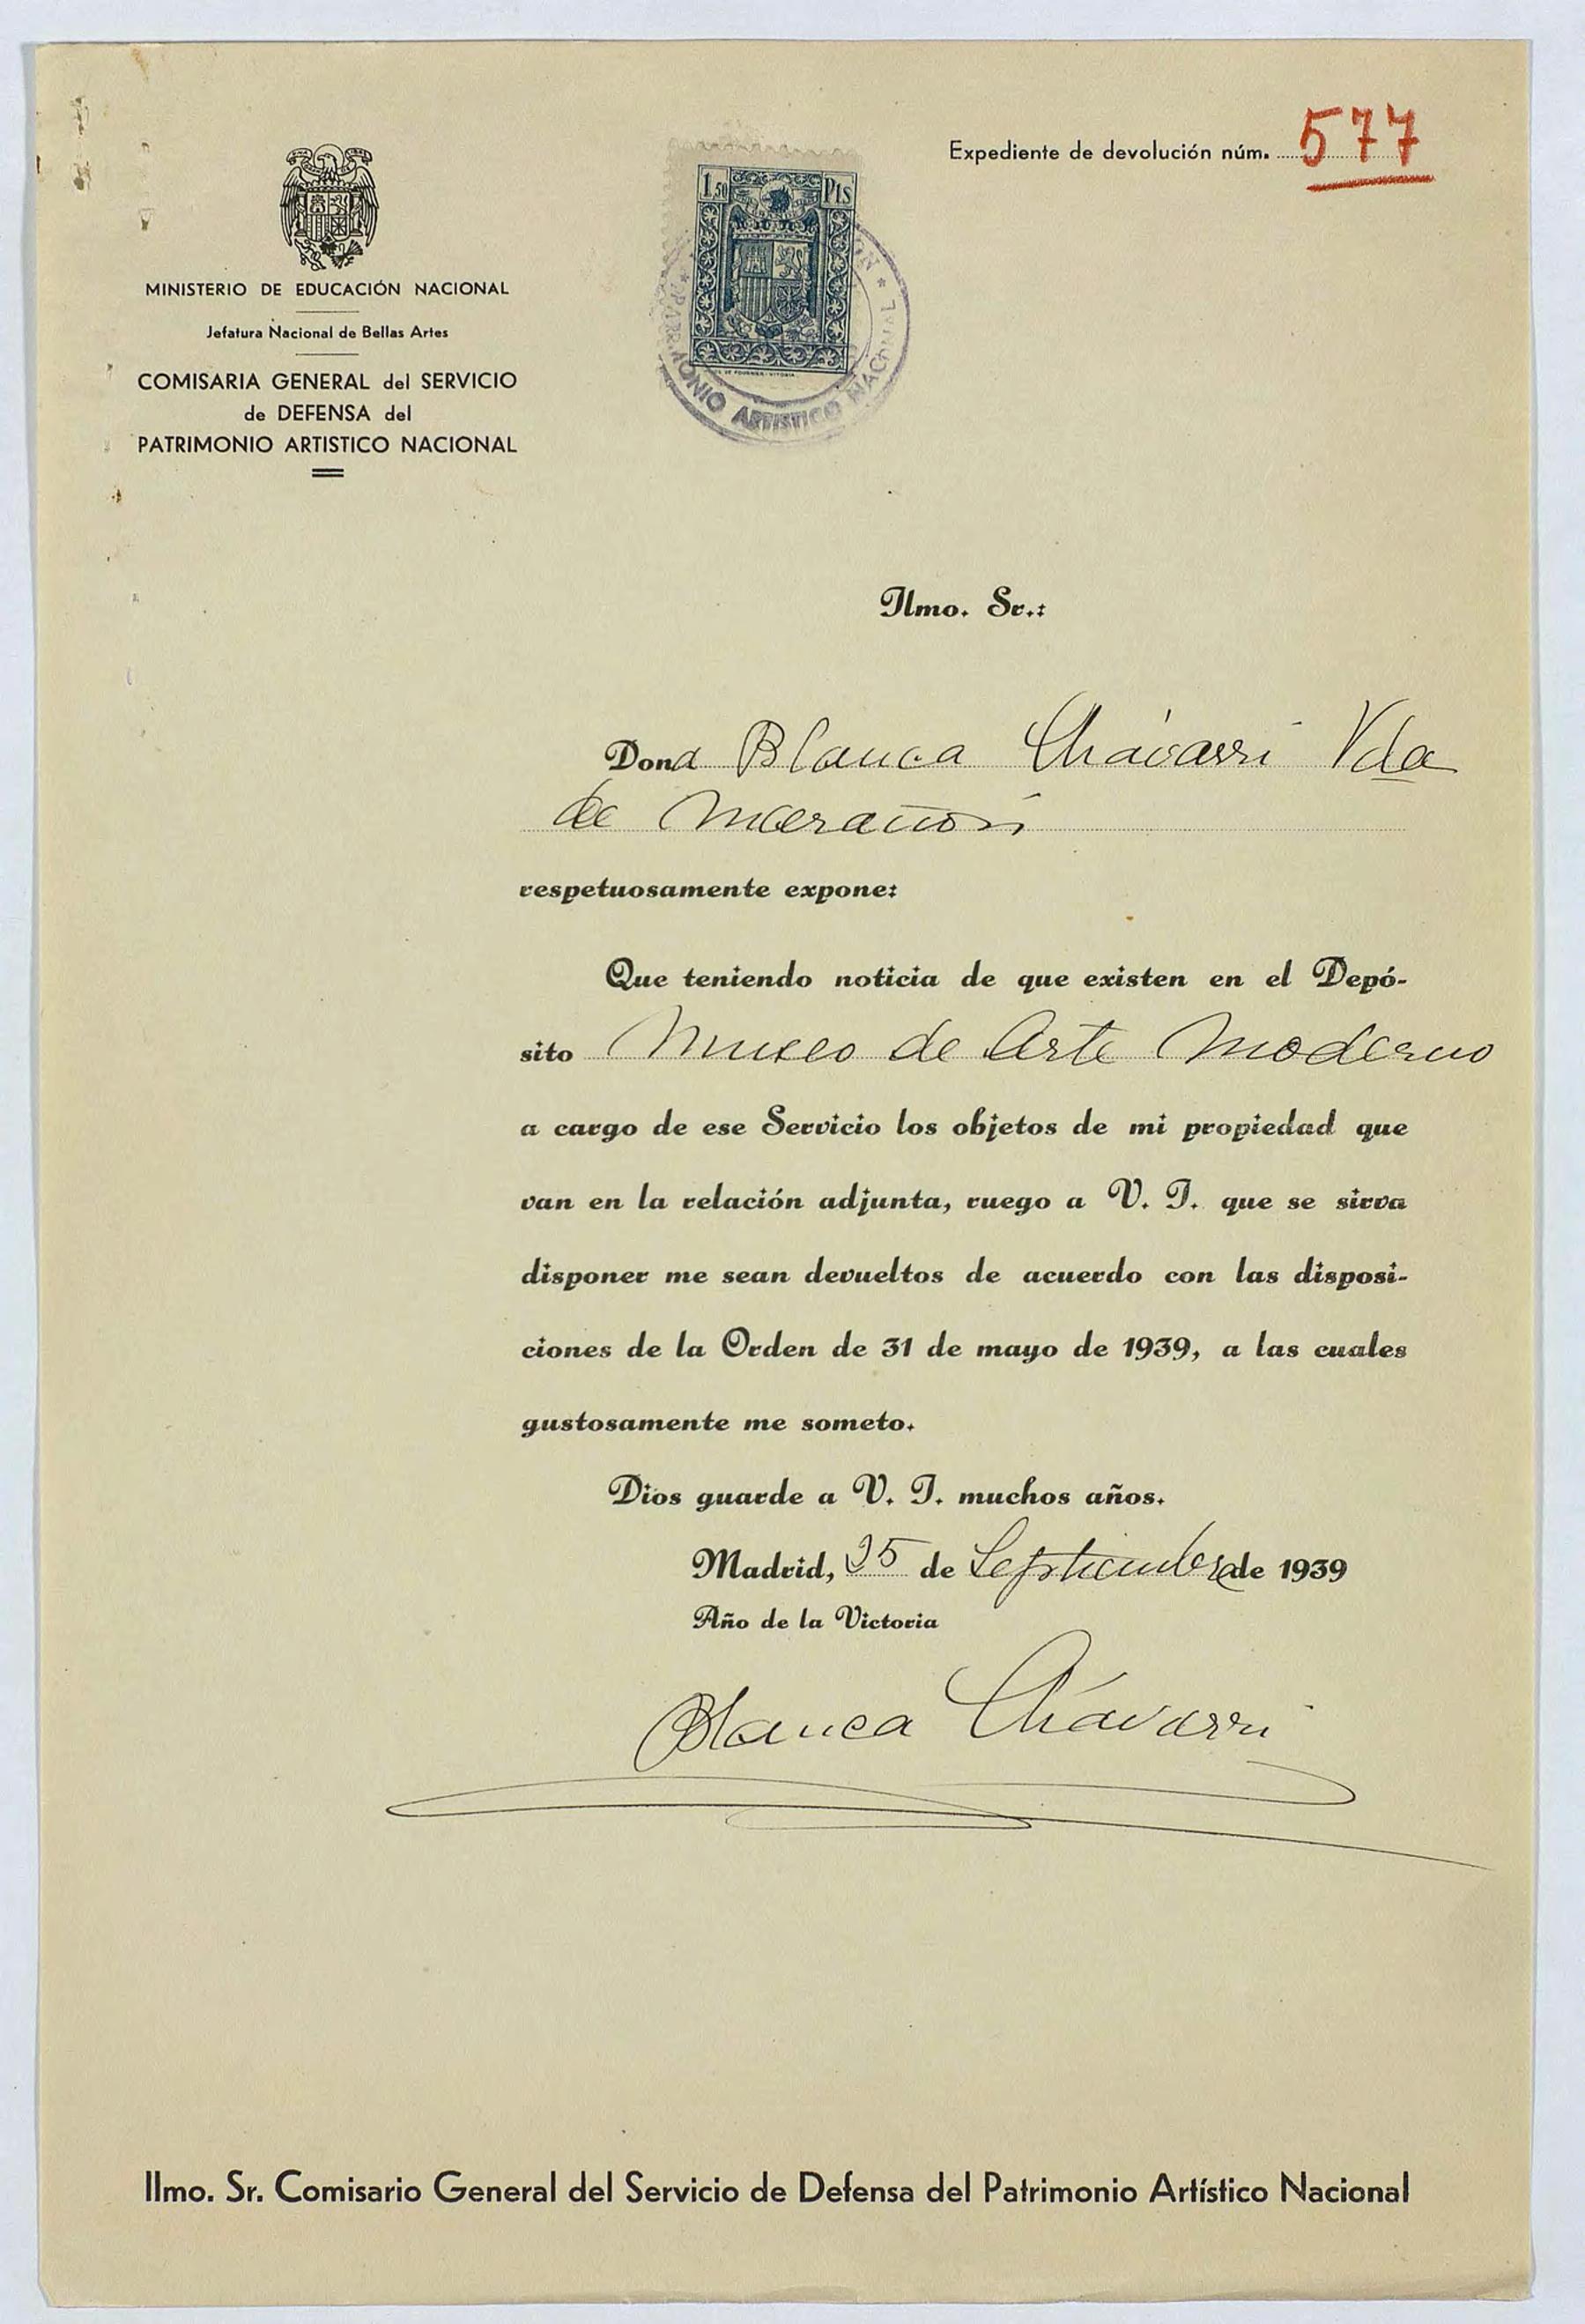 Expediente de devolución núm. 577
1,50 Pts
PATRIMONIO ARTISTICO NACIONAL
MINISTERIO DE EDUCACIÓN NACIONAL
Jefatura Nacional de Bellas Artes
COMISARIA GENERAL del SERVICIO
de DEFENSA del
PATRIMONIO ARTISTICO NACIONAL
Ilmo. Sr.:
Dona Blanca Chávarri Vda
de Marañón
respetuosamente expone:
Que teniendo noticia de que existen en el Depó-
sito Museo de Arte Moderno
a cargo de ese Servicio los objetos de mi propiedad que
van en la relación adjunta, ruego a V. I. que se sirva
disponer me sean devueltos de acuerdo con las disposi-
ciones de la Orden de 31 de mayo de 1939, a las cuales
gustosamente me someto.
Dios guarde a V. I. muchos años.
Madrid, 25 de Septiembre de 1939
Año de la Victoria
Blanca Chávarri
Ilmo. Sr. Comisario General del Servicio de Defensa del Patrimonio Artístico Nacional